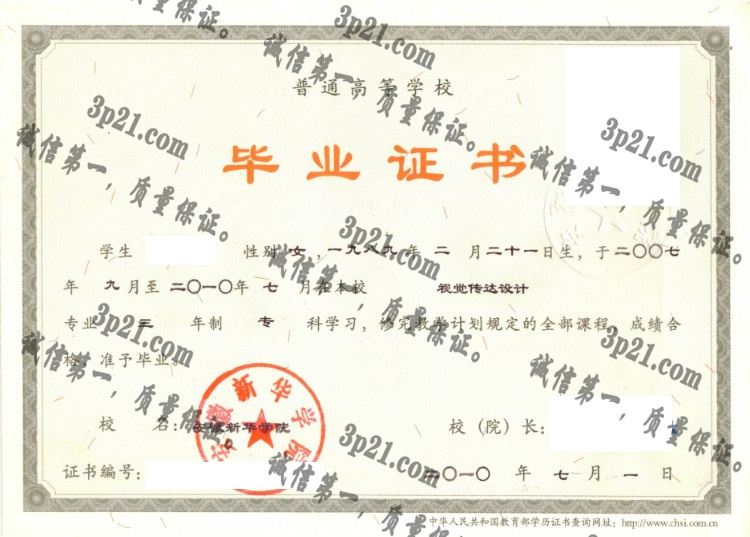 普通高等学校
毕业证书
学生 性别 女，一九八九年 二 月 二十一日生，于二〇〇七
年 九 月至 二〇一〇年 七 月在本校 视觉传达设计
专业 三 年制 专 科学习，修完教学计划规定的全部课程，成绩合
格，准予毕业。
安徽新华学院
校 名：安徽新华学院 校（院）长：
证书编号： 二〇一〇 年 七 月 一 日
中华人民共和国教育部学历证书查询网址：http://www.chsi.com.cn
质量保证。
3p21.com
诚信第一，质量保证。
3p21.com
诚信第一，质量保证。
3p21.com
诚信第一，质量保证。
3p21.com
诚信第一，质量保证。
3p21.com
诚信第一，质量保证。
3p21.com
诚信第一，质量保证。
3p21.com
诚信第一，质量保证。